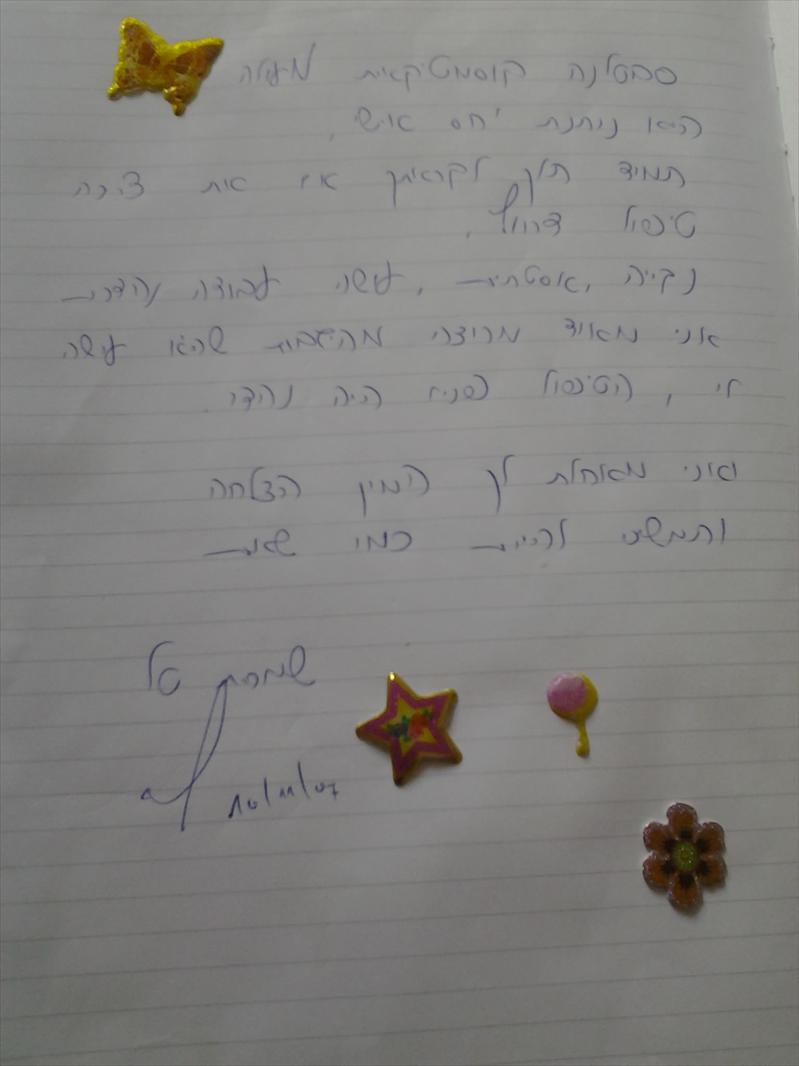 סבטלנה קוסמטיקאית מעולה
היא נותנת יחס אישי.
תמיד תלך לקראתך אם את צריכה
טיפול דחוף.
נקייה, אסטתית, עושה עבודה נהדרת
אני מאוד מרוצה מהגבות שהיא עושה
לי, הטיפול פנים היה נהדר.
ואני מאחלת לך המון הצלחה
ותמשיכי להיות כמו שאת
שמרת טל
10/11/07